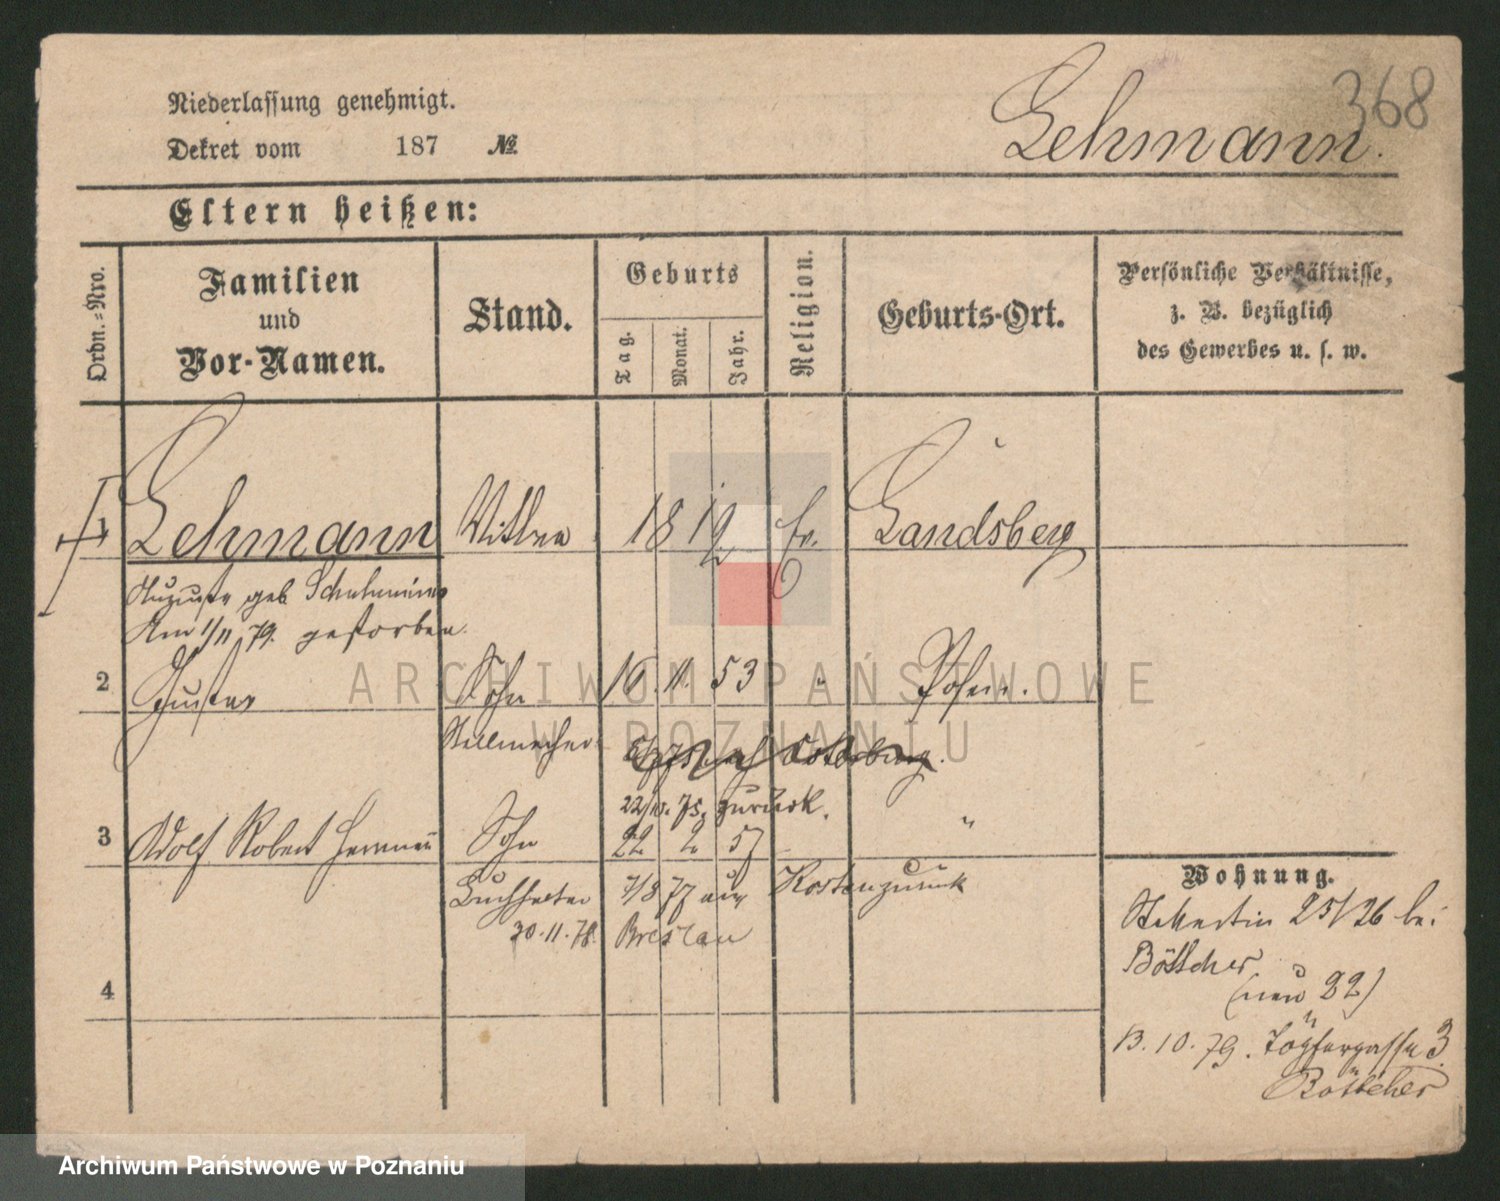 368
Lehmann.
Niederlassung genehmigt.
Dekret vom 187 №
Eltern heißen:
Ordn.-Nro.
Familien
und
Vor-Namen.
Stand.
Geburts
Tag.
Monat.
Jahr.
Religion.
Geburts-Ort.
Persönliche Verhältnisse,
z. B. bezüglich
des Gewerbes u. s. w.
1 Lehmann Wittwe 1812 Ev. Landsberg
Auguste geb
Am 1/11 79. gestorben.
2 Gustav Sohn 16. 11. 53 " Posen.
Stellmacher
22/10. 75. zurück.
3 Adolf Robert Hermann Sohn 22 2 57 "
Buchhalter 7/8 77 aus Kosten zurück
30.11.78. Breslau
4
Wohnung.
St. Martin 25/26 bei
Böttcher
(neu 22)
13.10.79. Töpfergasse 3.
Böttcher
ARCHIWUM PAŃSTWOWE
W POZNANIU
Archiwum Państwowe w Poznaniu